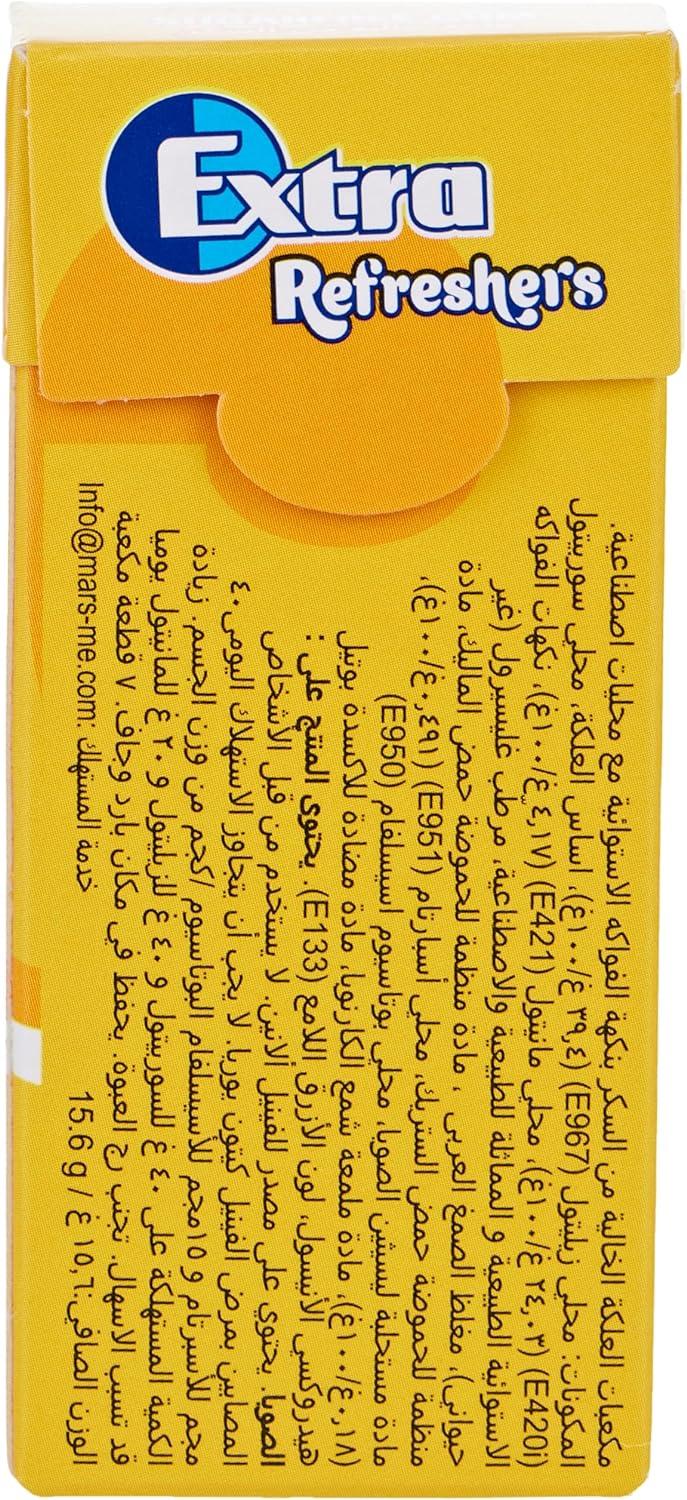 Extra
Refreshers
مكعبات العلكة الخالية من السكر بنكهة الفواكه الاستوائية مع محليات اصطناعية.
المكونات: محلي زيليتول (E967) (٣٩,٤ غ/١٠٠غ)، اساس العلكة، محلي سوربيتول
(E420i) (٢٤,٠٣ غ/١٠٠غ)، محلي مانيتول (E421) (٤,١٧غ/١٠٠غ)، نكهات الفواكه
الاستوائية الطبيعية و المماثلة للطبيعية والاصطناعية، مرطب غليسيرول (غير
حيواني)، مغلظ الصمغ العربي ، مادة منظمة للحموضة حمض الماليك، مادة
منظمة للحموضة حمض الستريك، محلي أسبارتام (E951) (٠,٤٩١غ/١٠٠غ)،
مادة مستحلبة ليسثين الصويا، محلي بوتاسيوم اسيسلفام (E950)
(٠,١٨غ/١٠٠غ)، مادة ملمعة شمع الكارنوبا، مادة مضادة للاكسدة بوتيل
هيدروكسي الأنيسول، لون الأزرق اللامع (E133). يحتوي المنتج على :
الصويا. يحتوي على مصدر للفنيل ألانين. لا يستخدم من قبل الأشخاص
المصابين بمرض الفينيل كيتون يوريا. لا يجب أن يتجاوز الاستهلاك اليومي ٤٠
مجم للأسبرتام و ١٥مجم للأسيسلفام البوتاسيوم /كجم من وزن الجسم. زيادة
الكمية المستهلكة على ٤٠ غ للسوربيتول و ٤٠ غ للزيليتول و ٢٠ غ للمانيتول يوميا
قد تسبب الاسهال. تجنب رج العبوة. يحفظ في مكان بارد وجاف. ٧ قطعة مكعبة
الوزن الصافي:١٥,٦ غ / 15.6 g
خدمة المستهلك :Info@mars-me.com